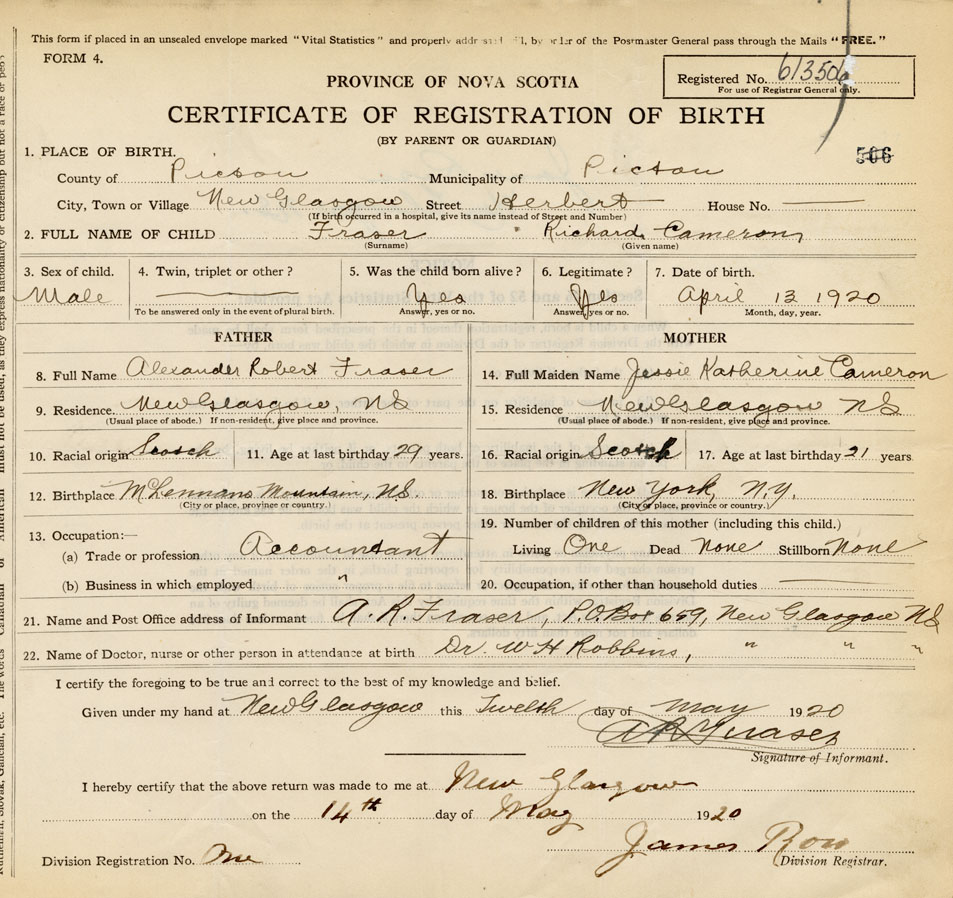 This form if placed in an unsealed envelope marked "Vital Statistics" and properly of the Postmaster General pass through the Mails "FREE."
FORM 4.
Registered No. 613506
For use of Registrar General only.
PROVINCE OF NOVA SCOTIA
CERTIFICATE OF REGISTRATION OF BIRTH
(BY PARENT OR GUARDIAN)
506
1. PLACE OF BIRTH.
County of Pictou Municipality of Pictou
City, Town or Village New Glasgow Street Herbert House No.
(If birth occurred in a hospital, give its name instead of Street and Number)
2. FULL NAME OF CHILD Fraser Richard Cameron
(Surname) (Given name)
3. Sex of child. 4. Twin, triplet or other? 5. Was the child born alive? 6. Legitimate? 7. Date of birth.
Male Yes Yes April 13 1920
To be answered only in the event of plural birth. Answer, yes or no. Answer, yes or no. Month, day, year.
FATHER MOTHER
8. Full Name Alexander Robert Fraser 14. Full Maiden Name Jessie Katherine Cameron
9. Residence. New Glasgow, NS 15. Residence New Glasgow NS
(Usual place of abode.) If non-resident, give place and province. (Usual place of abode.) If non-resident, give place and province.
10. Racial origin Scotch 11. Age at last birthday 29 years. 16. Racial origin Scotch 17. Age at last birthday 21 years
12. Birthplace McLennans Mountain, NS. 18. Birthplace New York, N.Y.
(City or place, province or country.) (City or place, province or country.)
19. Number of children of this mother (including this child.)
13. Occupation:—
(a) Trade or profession Accountant Living One Dead None Stillborn None
(b) Business in which employed " 20. Occupation, if other than household duties
21. Name and Post Office address of Informant A. R. Fraser, P.O. Box 659, New Glasgow NS
22. Name of Doctor, nurse or other person in attendance at birth Dr. W H Robbins, " " "
I certify the foregoing to be true and correct to the best of my knowledge and belief.
Given under my hand at New Glasgow this Twelth day of May 1920
A R Fraser
Signature of Informant.
I hereby certify that the above return was made to me at New Glasgow
on the 14th day of May 1920
James Row
Division Registration No. One Division Registrar.